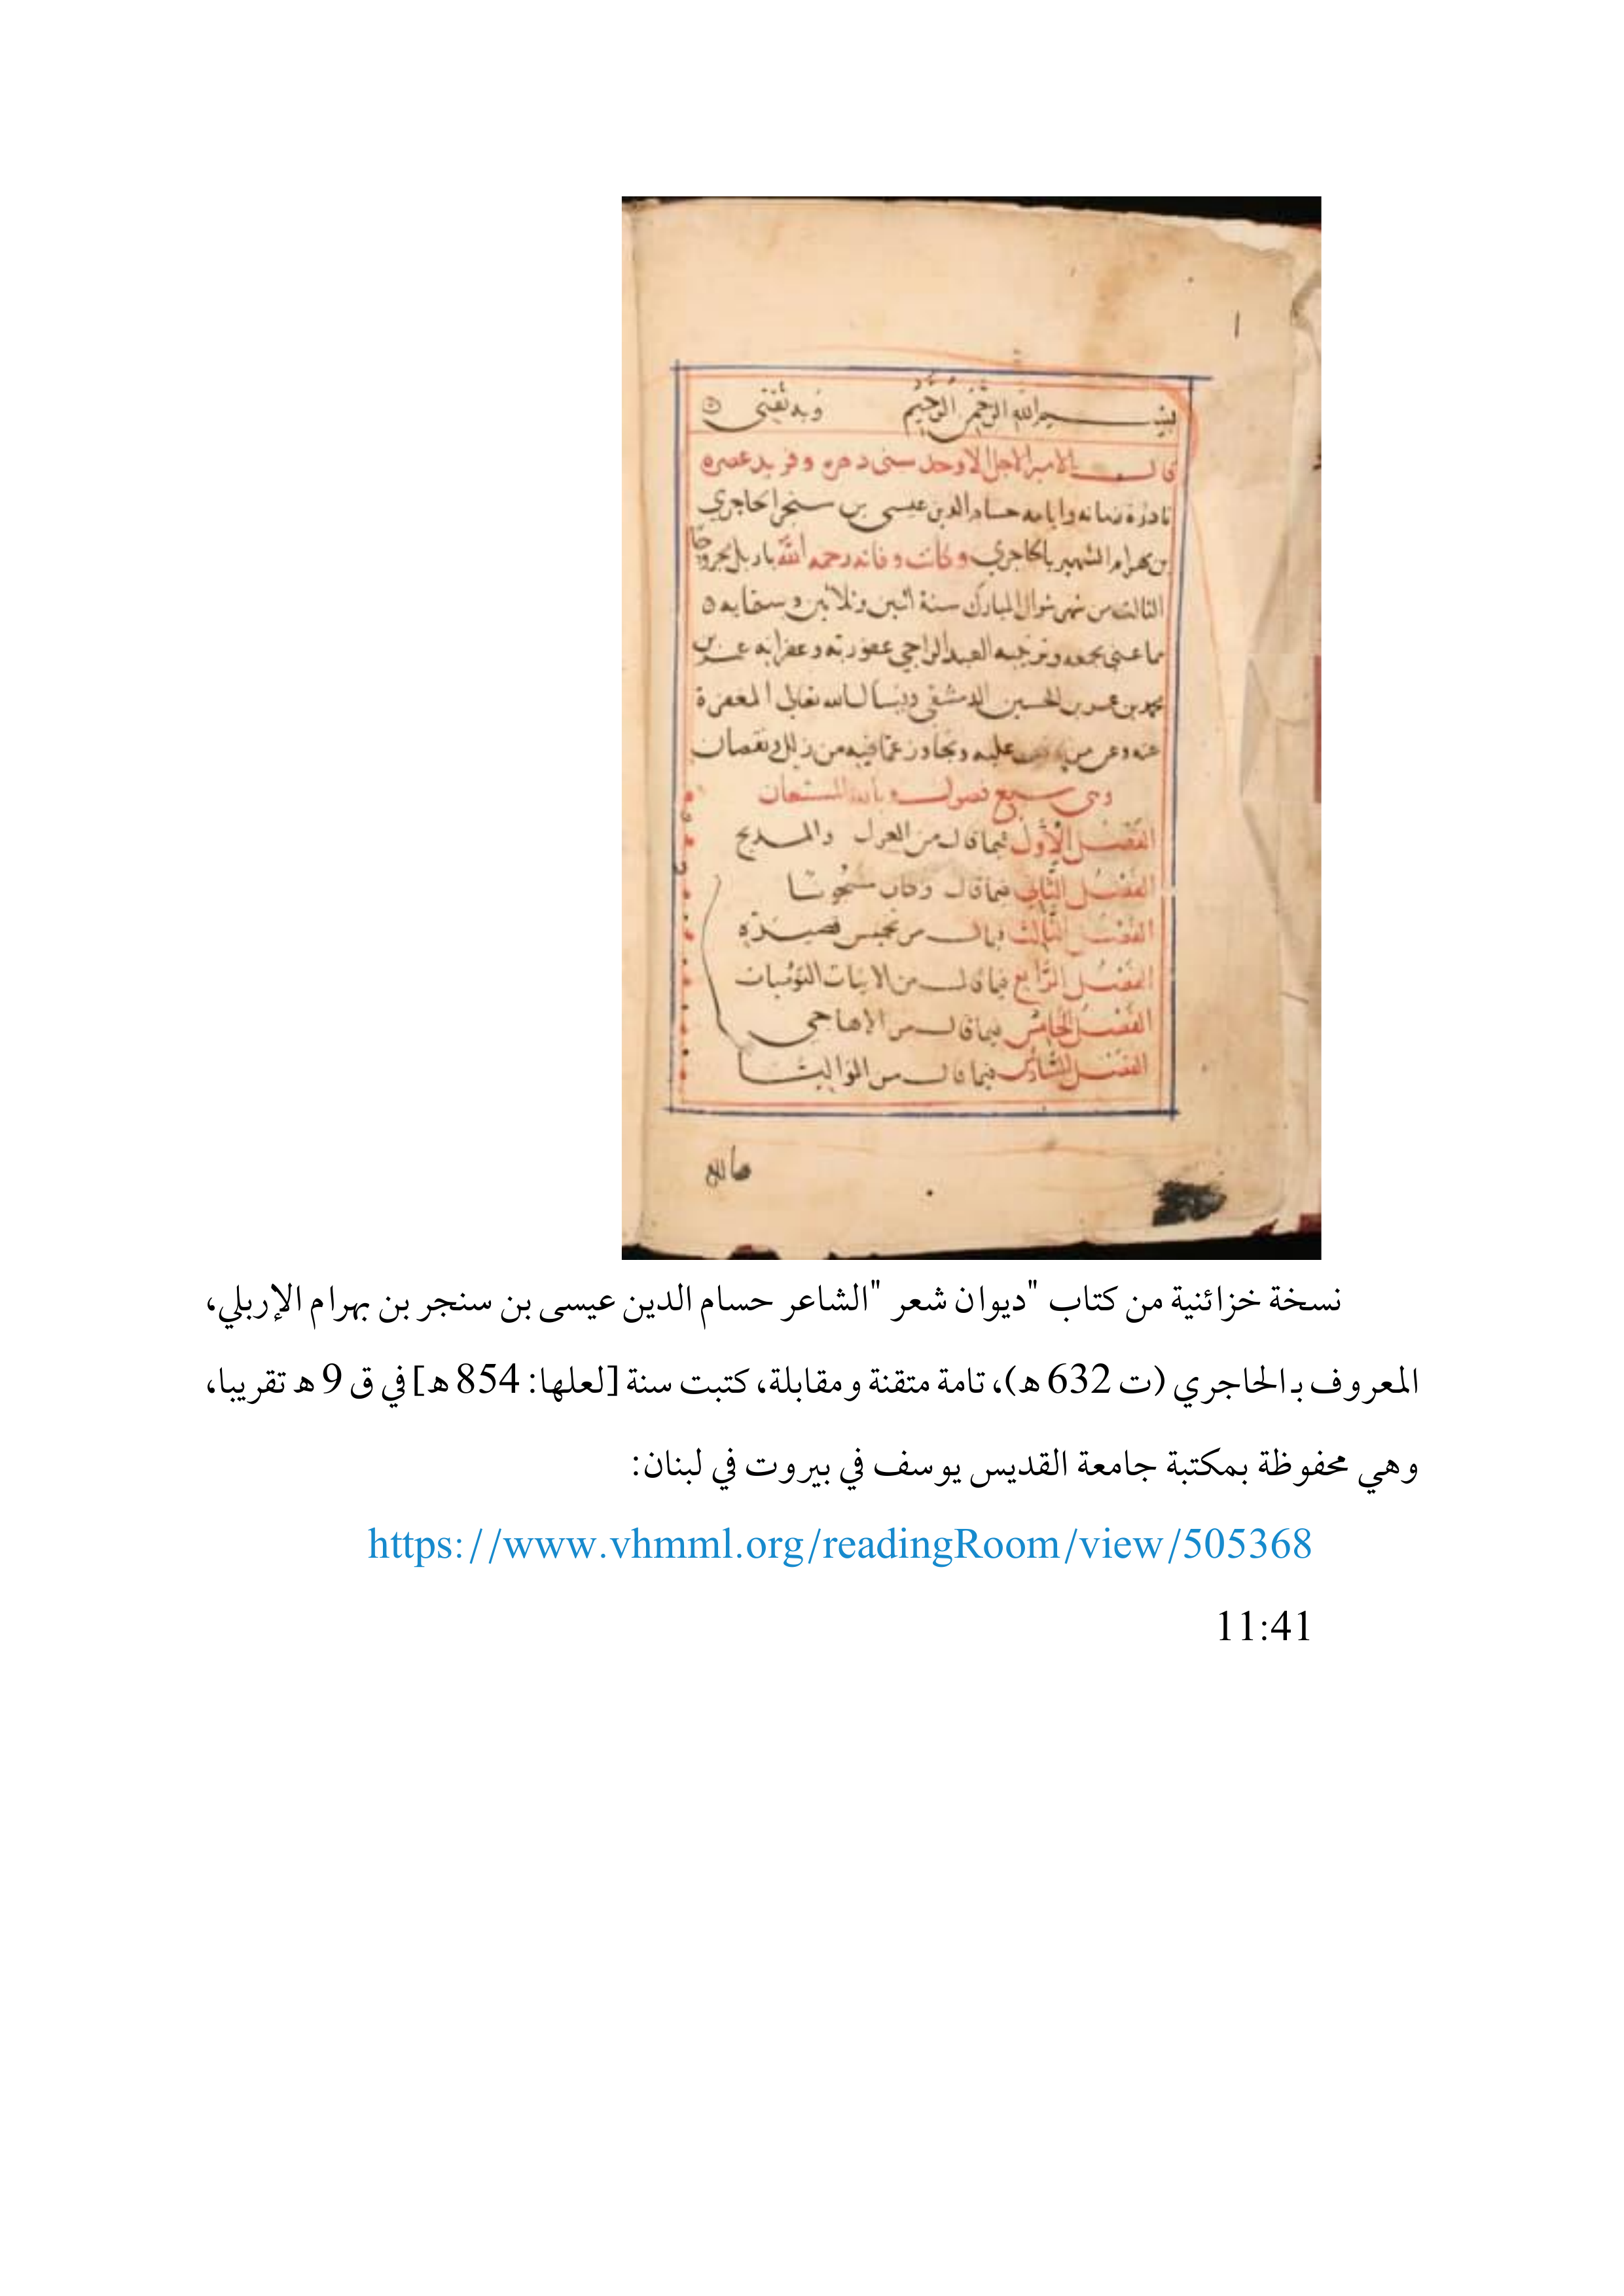 بسم الله الرحمن الرحيم وبه ثقتي
قال الامير الاجل الاوحد سنى دهره وفريد عصره
نادرة زمانه وايامه حسام الدين عيسى بن سنجر الحاجري
بن بهرام الشهير بالحاجري وكانت وفاته رحمه الله باربل مجروحا
الثالث من شهر شوال المبارك سنة اثنين وثلاثين وستمايه
مما عنى بجمعه وترتيبه العبد الراجي عفو ربه وغفرانه عمر بن
محمد بن عمر بن الحسين الدمشقي ويسال الله تعالى المغفرة
عنه وعن من عليه وتجاوز عما فيه من زلل ونقصان
وهى سبع فصول وبالله المستعان
الفصل الاول فيما قال من الغزل والمديح
الفصل الثاني فيما قال وكان مسجونا
الفصل الثالث فيما قال من تخميس قصيدة
الفصل الرابع فيما قال من الابيات
الفصل الخامس فيما قال من الاهاجي
الفصل السادس فيما قال من المواليا
نسخة خزائنية من كتاب "ديوان شعر "الشاعر حسام الدين عيسى بن سنجر بن بهرام الإربلي،
المعروف بـ الحاجري (ت 632 هـ)، تامة متقنة ومقابلة، كتبت سنة [لعلها: 854 هـ] في ق 9 هـ تقريبا،
وهي محفوظة بمكتبة جامعة القديس يوسف في بيروت في لبنان:
https://www.vhmml.org/readingRoom/view/505368
11:41